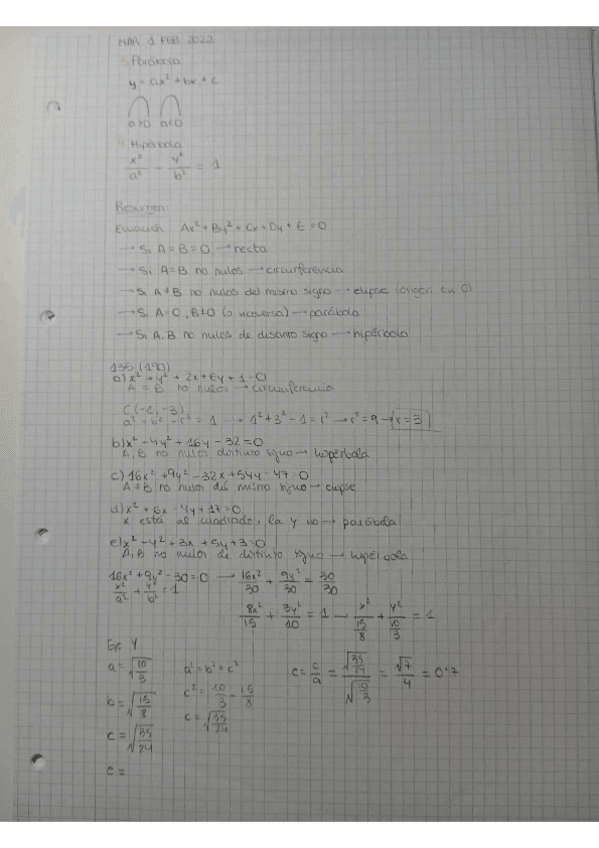 MAR 1 FEB 2022
Parábola
y = ax² + bx + c
a>0 a<0
Hipérbola
x²/a² - y²/b² = 1
Resumen:
Ecuación Ax² + By² + Cx + Dy + E = 0
→ Si A = B = 0 → recta
→ Si A = B no nulos → circunferencia
→ Si A ≠ B no nulos del mismo signo → elipse (origen en O)
→ Si A = 0, B ≠ 0 (o viceversa) → parábola
→ Si A, B no nulos de distinto signo → hipérbola
136 (190)
a) x² + y² + 2x + 6y + 1 = 0
A = B no nulos → circunferencia
C(-1, -3)
a² + b² - r² = 1 → 1² + 3² - 1 = r² → r² = 9 → r = 3
b) x² - 4y² + 16y - 32 = 0
A, B no nulos distinto signo → hipérbola
c) 16x² + 9y² - 32x + 54y - 47 = 0
A ≠ B no nulos del mismo signo → elipse
d) x² + 6x - 4y + 17 = 0
x está al cuadrado, la y no → parábola
e) x² - y² + 3x + 5y + 3 = 0
A, B no nulos de distinto signo → hipérbola
16x² + 9y² - 30 = 0 → 16x²/30 + 9y²/30 = 30/30
x²/a² + y²/b² = 1
8x²/15 + 3y²/10 = 1 → x²/(15/8) + y²/(10/3) = 1
Eje Y
a = √(10/3) a² = b² + c² e = c/a = √(35/24)/√(10/3) = √7/4 = 0'7
b = √(15/8) c² = 10/3 - 15/8
c = √(35/24) c = √(35/24)
e =